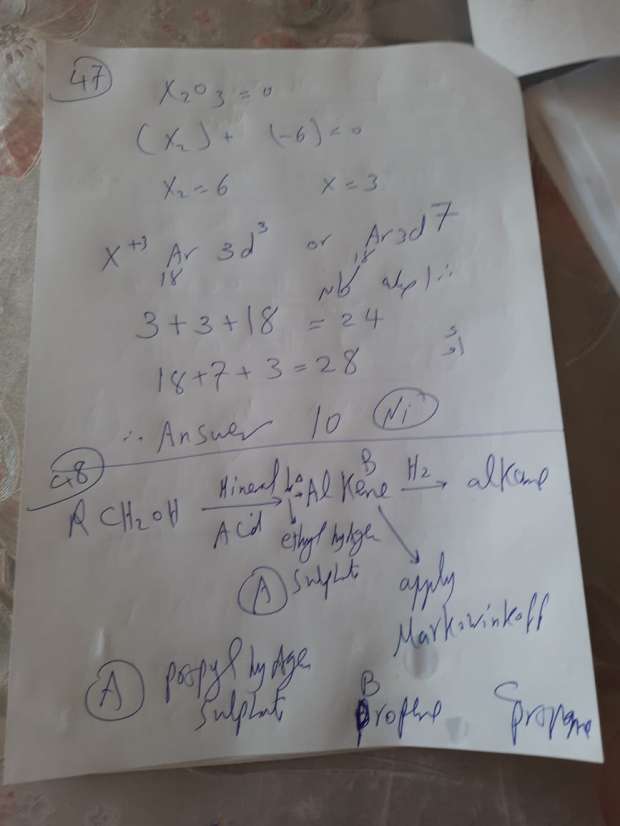 47
X2O3 = 0
(X2) + (-6) = 0
X2 = 6 X = 3
X+3 Ar 3d3 or Ar 3d7
18 18
3 + 3 + 18 = 24
أو
18 + 7 + 3 = 28
∴ Answer 10 Ni
48
R CH2OH Mineral Acid Alkene B H2 alkane
ethyl hydrogen
A Sulphate apply
Markowinkoff
A propyl hydrogen B C
Sulphate propene propane